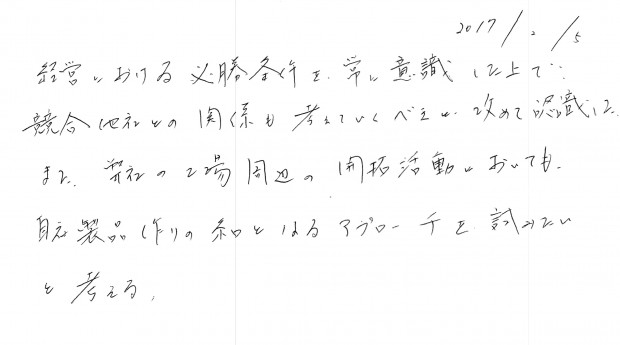 2017/2/5
経営における必勝条件を常に意識した上で、
競合他社との関係も考えていくべきと改めて認識した。
また、弊社の工場周辺の開拓活動においても、
自社製品作りの糸口となるアプローチを試みたい
と考える。